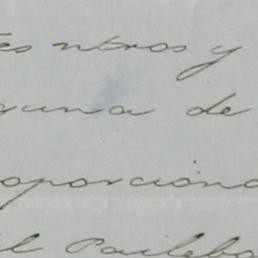 tes ntros y
guna de
oporciona
il Pailebo